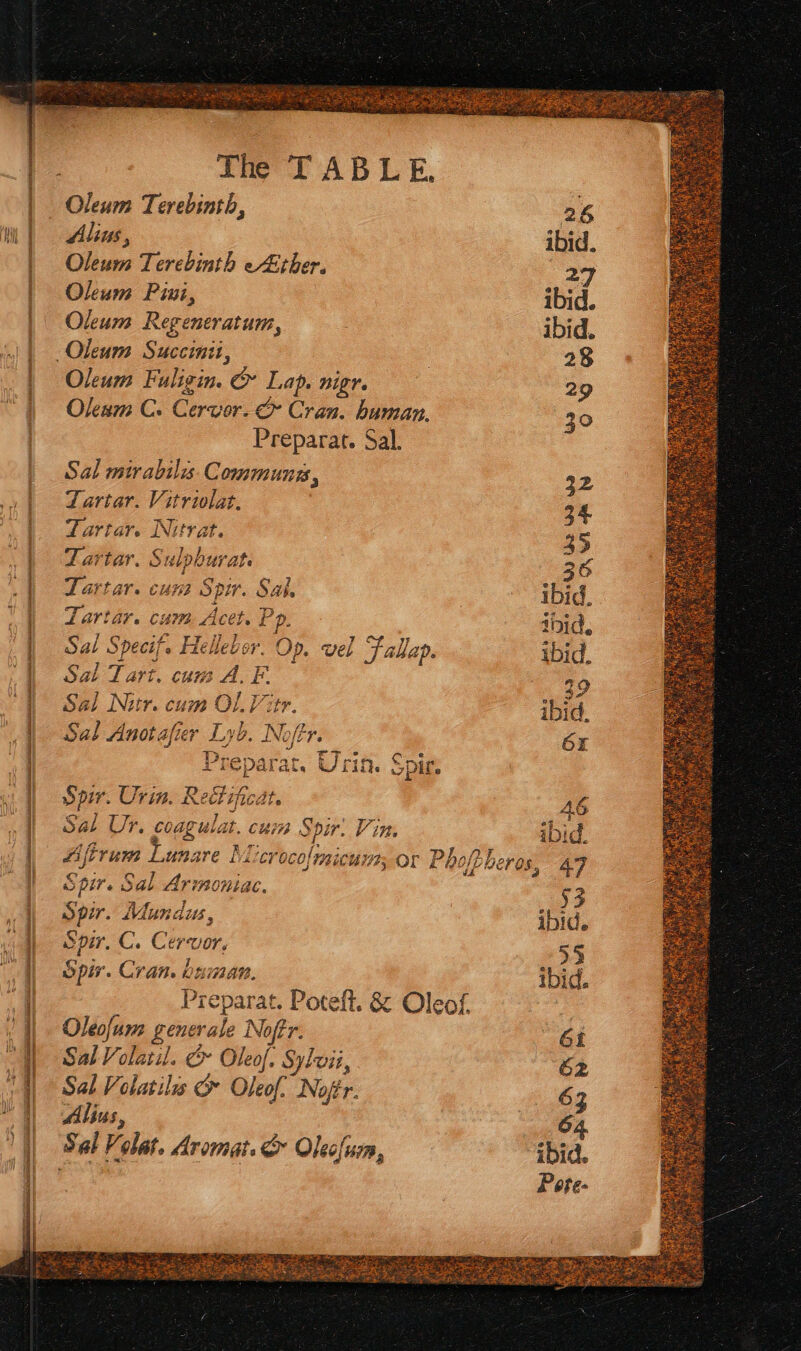 The TABLE.
Oleum Terebinth, 26
Alius, ibid.
Oleum Terebinth Æther. 27
Oleum Pini, ibid.
Oleum Regeneratum, ibid.
Oleum Succinii, 28
Oleum Fuligin. & Lap. nigr. 29
Oleum C. Cervor. & Cran. human. 30
Preparat. Sal.
Sal mirabilis Communis, 32
Tartar. Vitriolat. 34
Tartar. Nitrat. 35
Tartar. Sulphurat. 36
Tartar. cum Spir. Sal. ibid.
Tartar. cum Acet. Pp. ibid.
Sal Specif. Hellebor. Op. vel Jallap. ibid.
Sal Tart. cum A. F. 39
Sal Nitr. cum Ol. Vitr. ibid.
Sal Anotaſier Lyb. Noſtr. 61
Preparat. Urin. Spir.
Spir. Urin. Rectificat. 46
Sal Ur. coagulat. cum Spir. Vin. ibid.
Aſtrum Lunare Microcoſmicum, or Phoſpheros, 47
Spir. Sal Armoniac. 53
Spir. Mundus, ibid.
Spir. C. Cervor, 55
Spir. Cran. human. ibid.
Preparat. Poteſt. & Oleoſ.
Oleoſum generale Noſtr. 61
Sal Volatil. & Oleoſ. Sylvii, 62
Sal Volatilis & Oleoſ. Noſtr. 63
Alius, 64
Sal Volat. Aromat. & Oleoſum, ibid.
Pote-